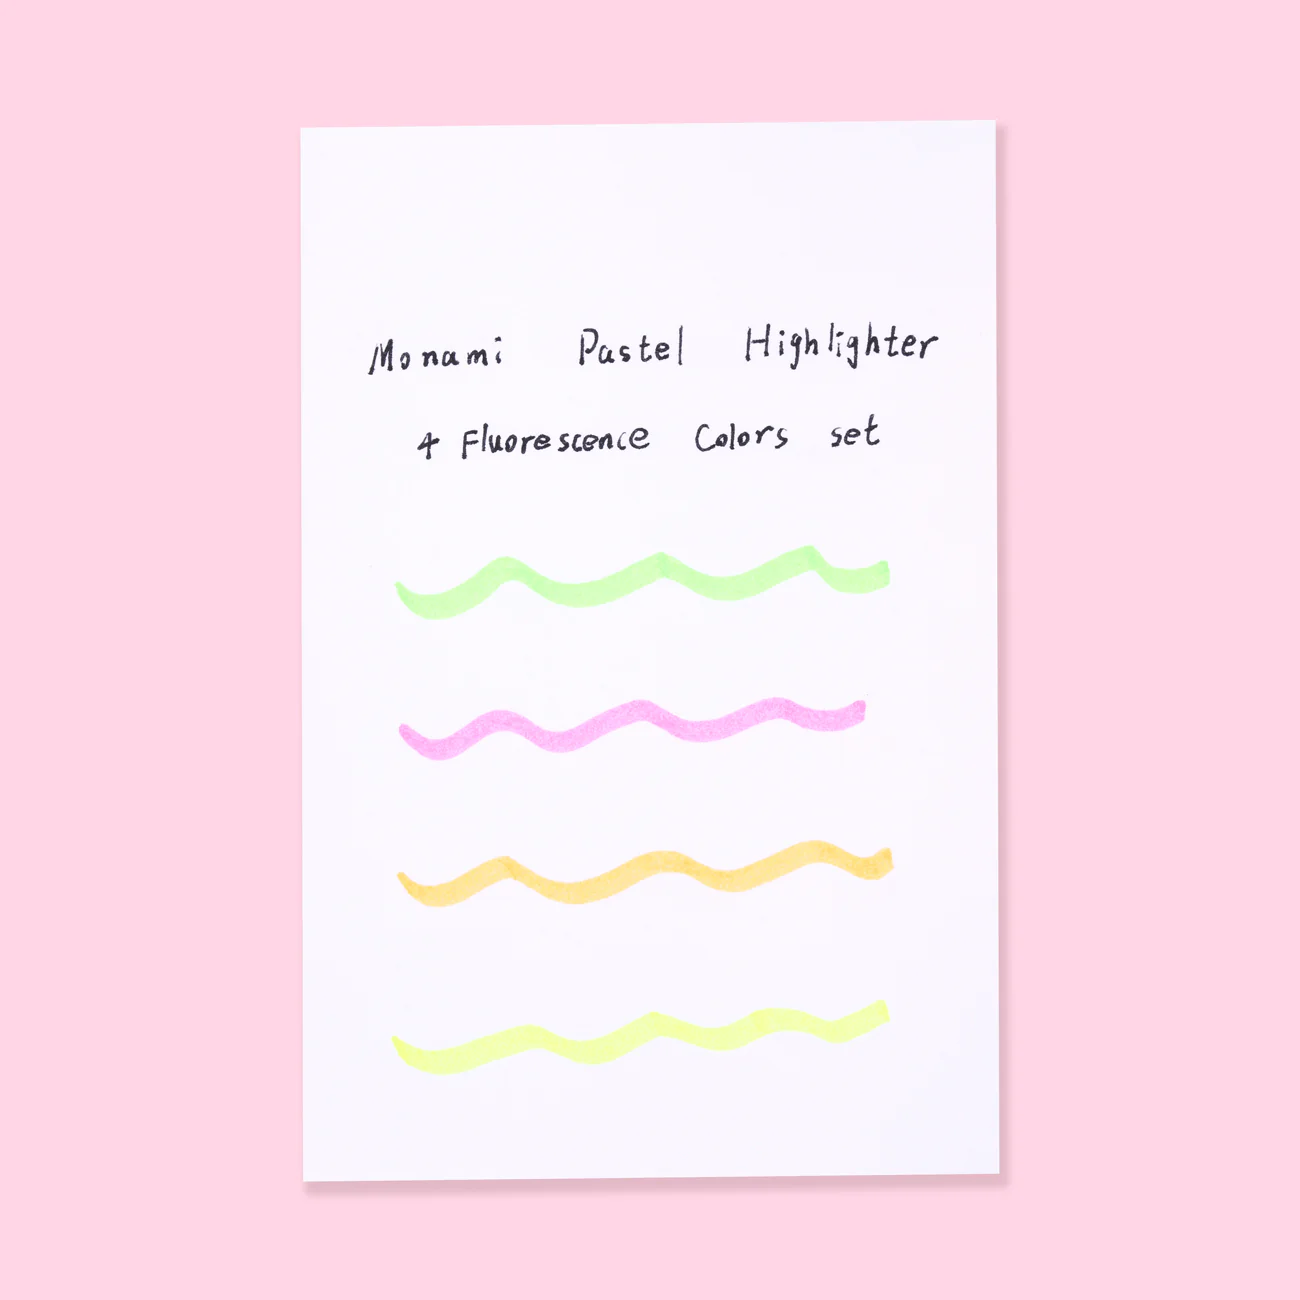 Monami Pastel Highlighter
4 Fluorescence Colors set